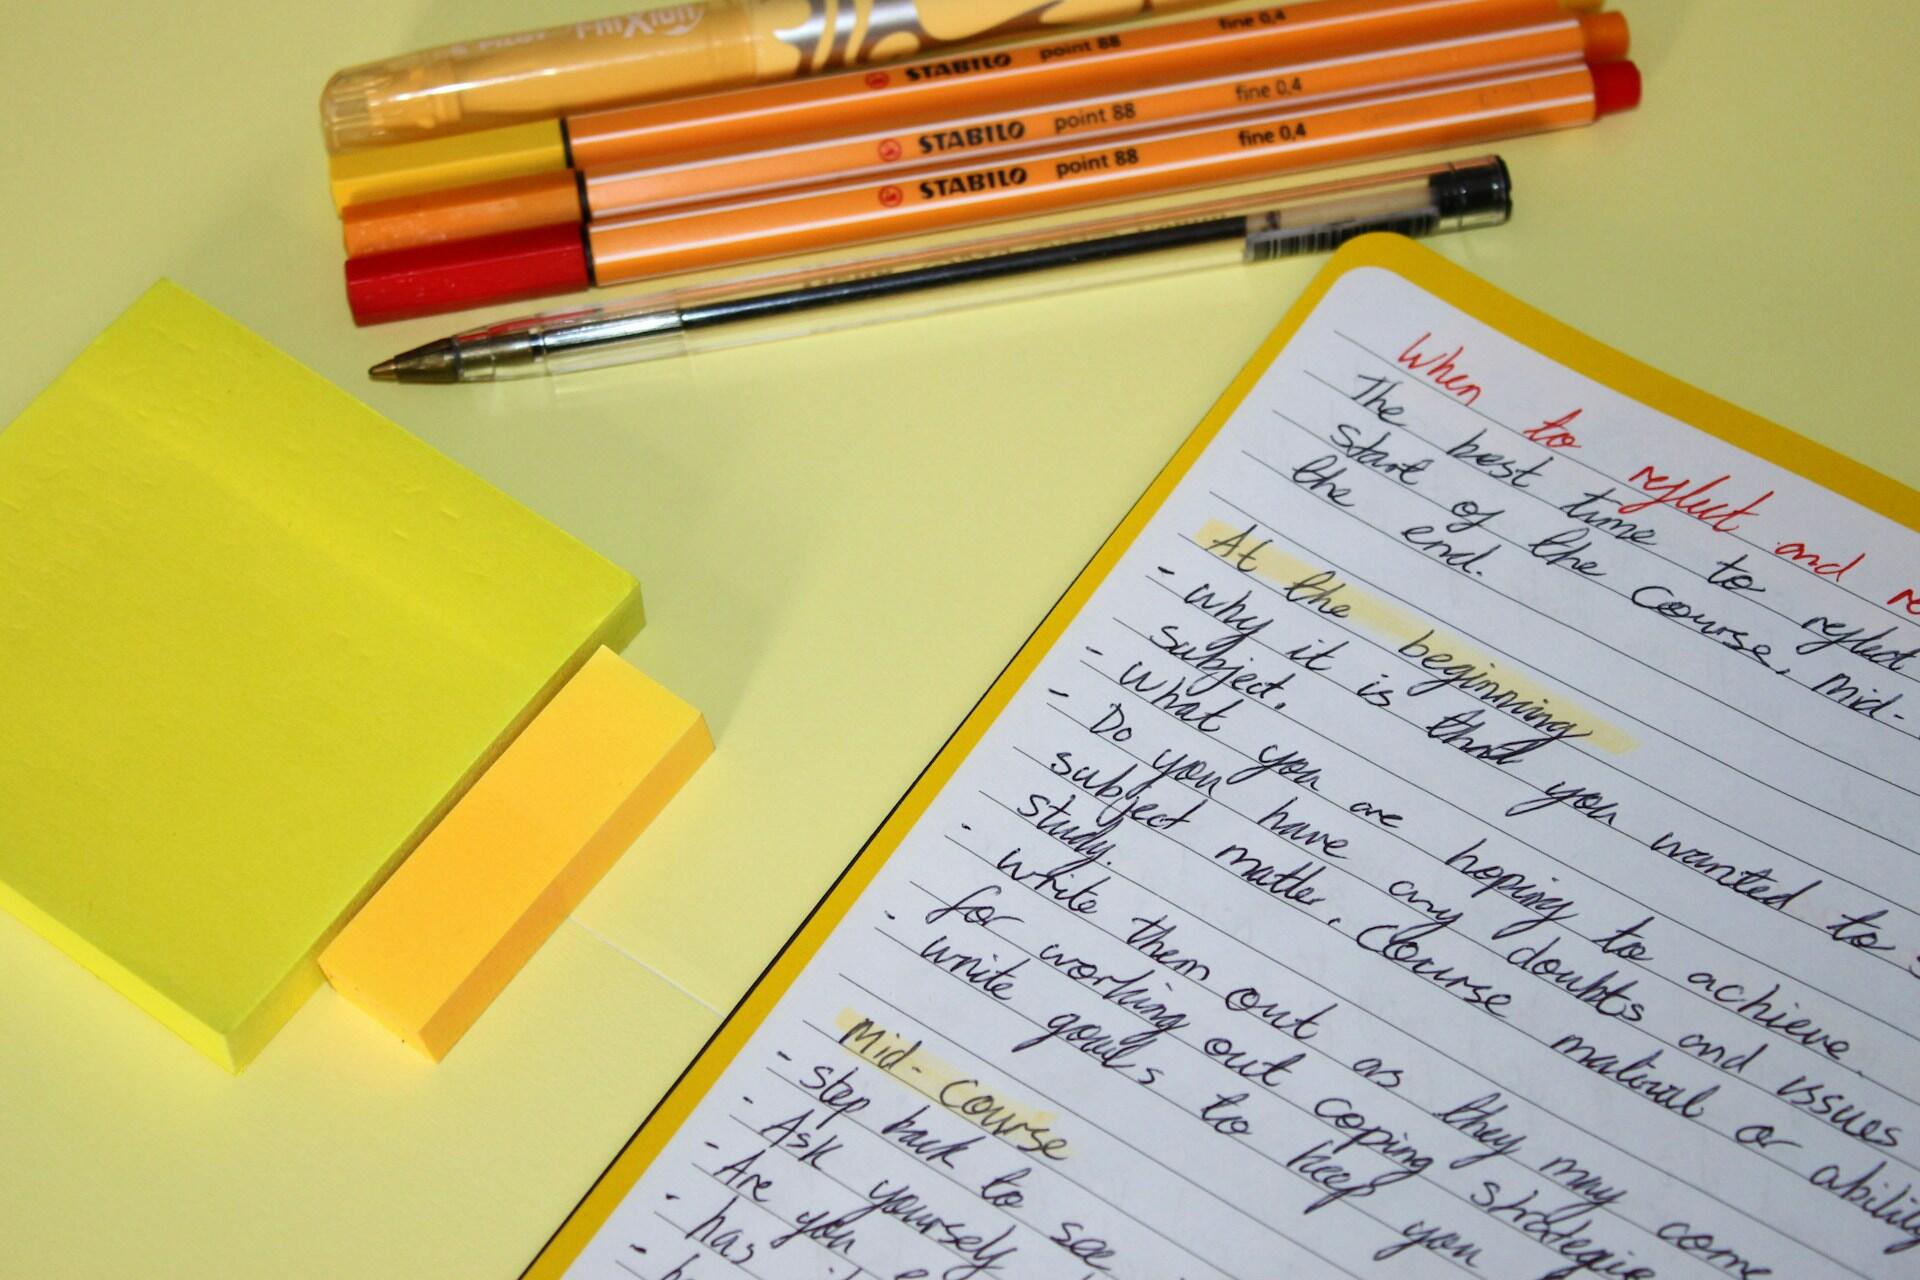 PILOT FRIXION
STABILO point 88 fine 0,4
STABILO point 88 fine 0,4
STABILO point 88 fine 0,4
When to reflect and re
The best time to reflect
start of the course, mid-
the end.
At the beginning
- why it is that you wanted to s
subject.
- what you are hoping to achieve.
- Do you have any doubts and issues
subject matter, course material or ability
study.
- write them out as they may come
for working out coping strategie
- write goals to keep you
Mid-Course
- step back to see
- Ask yourself
- Are you
- has